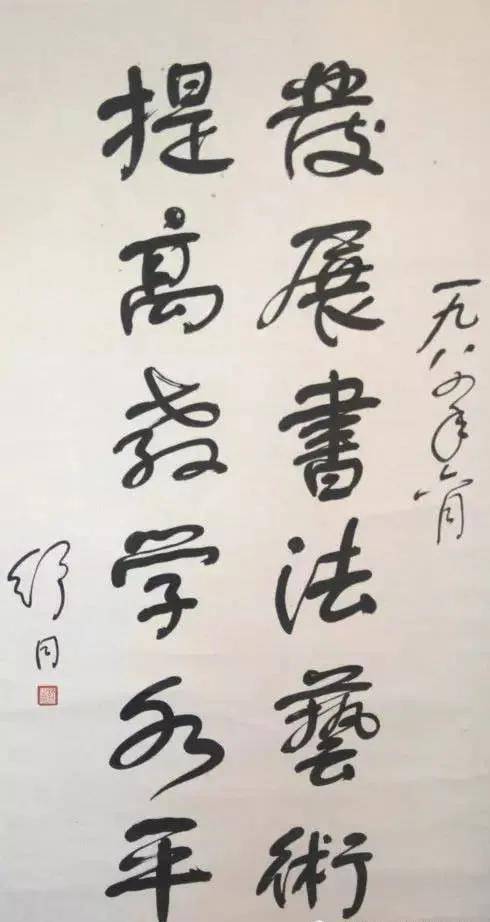 一九八四年六月
發展書法藝術
提高教学水平
舒同